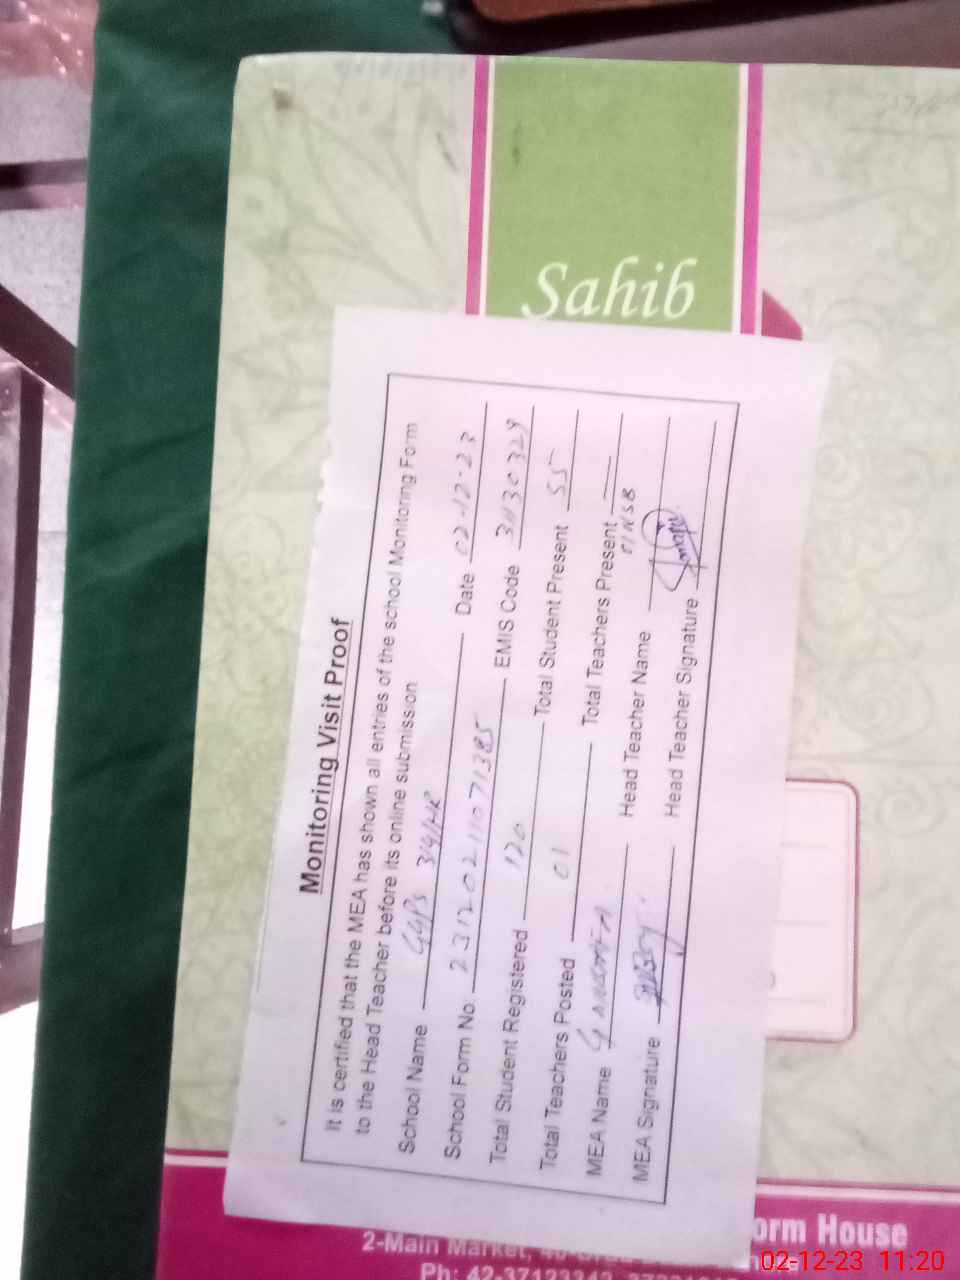 Sahib
Monitoring Visit Proof
It is certified that the MEA has shown all entries of the school Monitoring Form
to the Head Teacher before its online submission
School Name GGPS 319/HR Date 02-12-23
School Form No. 23120211071385 EMIS Code 31130329
Total Student Registered 120 Total Student Present 55
Total Teachers Posted 01 Total Teachers Present
MEA Name Head Teacher Name
MEA Signature Head Teacher Signature
orm House
2-Main Market,
Ph: 42-37123342,
02-12-23 11:20